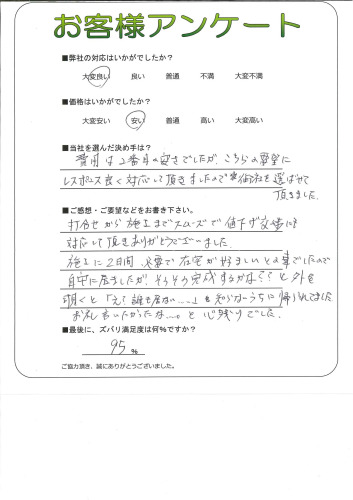 お客様アンケート
■弊社の対応はいかがでしたか？
大変良い 良い 普通 不満 大変不満
■価格はいかがでしたか？
大変安い 安い 普通 高い 大変高い
■当社を選んだ決め手は？
費用は2番目の安さでしたが、こちらの要望に
レスポンス良く対応して頂きましたので御社を選ばせて
頂きました。
■ご感想・ご要望などをお書き下さい。
打合せから施工までスムーズで値下げ交渉にも
対応して頂きありがとうございました。
施工に2日間、必要で在宅が好ましいとの事でしたので
自宅に居ましたが、そろそろ完成するかな？？と外を
覗くと「え！誰も居ない…」も知らないうちに帰られてました
お礼言いたかったな…。と心残りでした。
■最後に、ズバリ満足度は何％ですか？
95 ％
ご協力頂き、誠にありがとうございました。